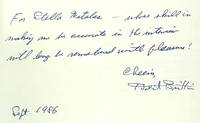 For Stella Metalas – whose skill in
making me be accurate in the interview
will long be remembered with pleasure!
Cheers,
Sept. 1986